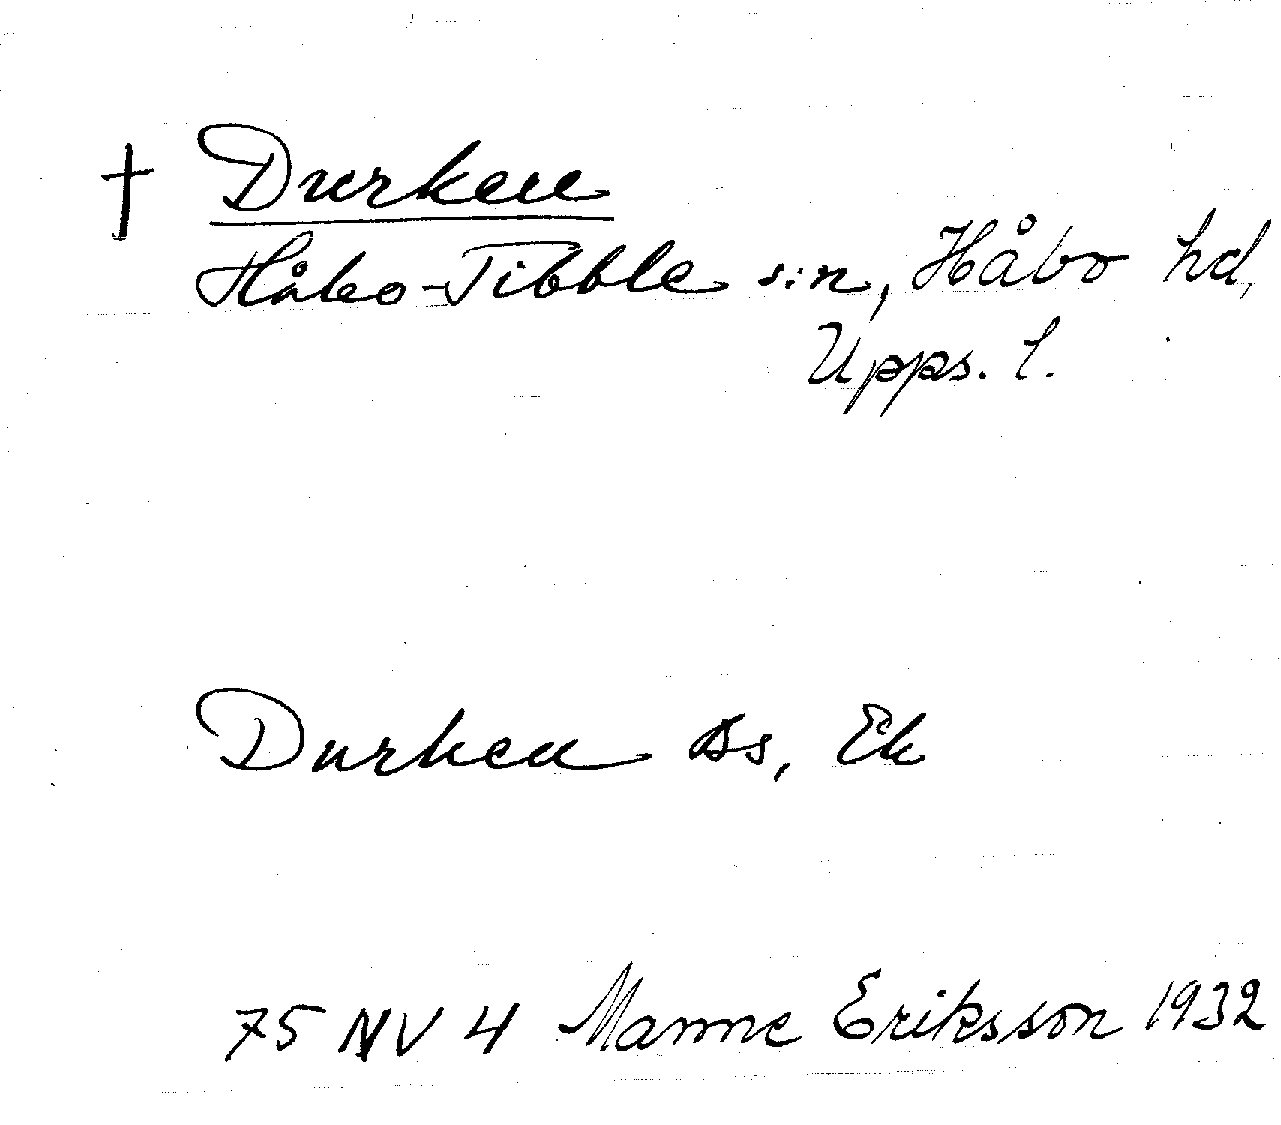 † Durken
Håbo-Tibble s:n, Håbo hd,
Upps. l.
Durken Bs, Ek
75 NV 4 Manne Eriksson 1932